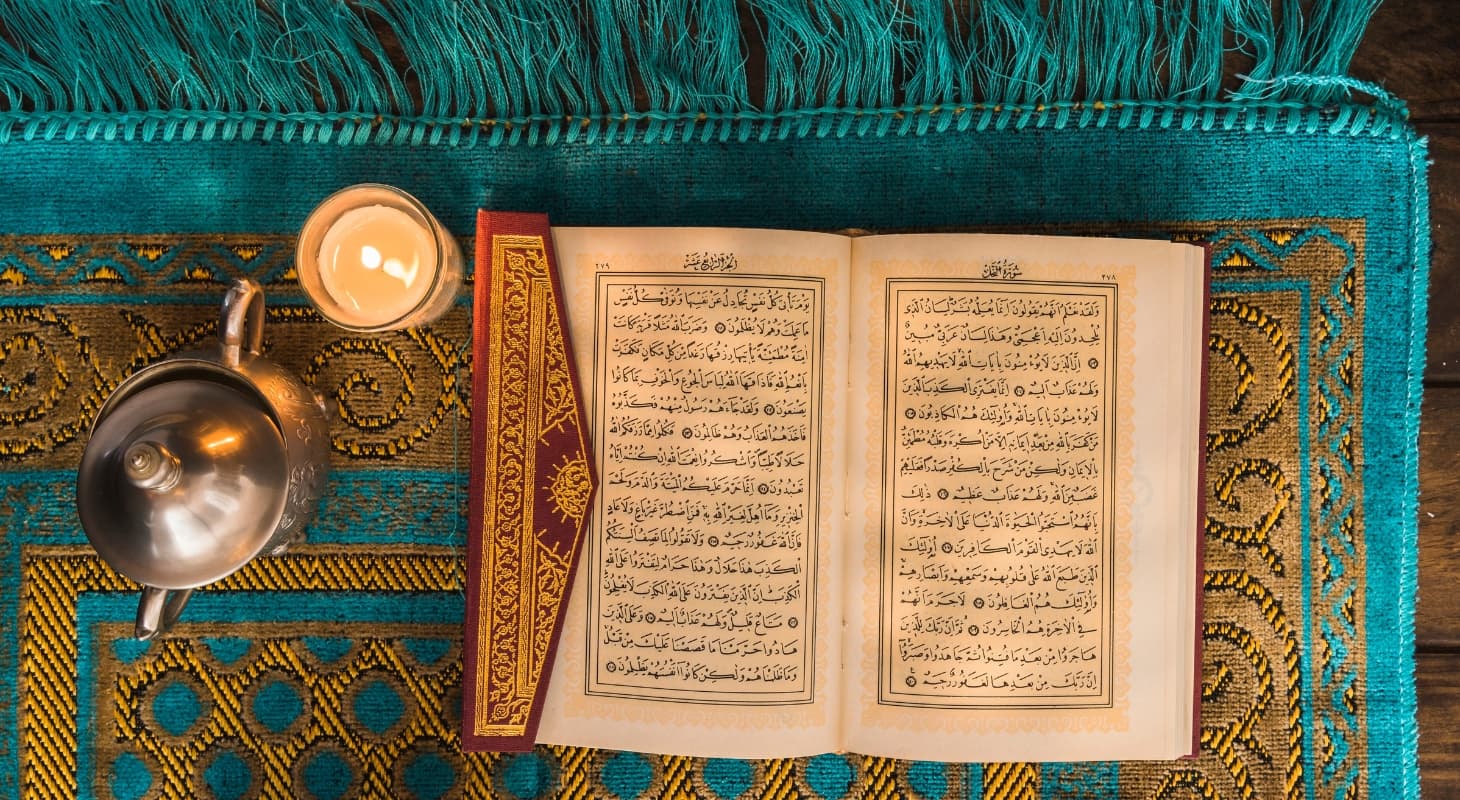 سُورَةُ النَّحْلِ ٢٧٨
وَلَقَدْ نَعْلَمُ اَنَّهُمْ يَقُولُونَ اِنَّمَا يُعَلِّمُهُ بَشَرٌ لِسَانُ الَّذِى
يُلْحِدُونَ اِلَيْهِ اَعْجَمِىٌّ وَهٰذَا لِسَانٌ عَرَبِىٌّ مُبِينٌ
١٠٣ اِنَّ الَّذِينَ لَا يُؤْمِنُونَ بِاٰيَاتِ اللّٰهِ لَا يَهْدِيهِمُ اللّٰهُ
وَلَهُمْ عَذَابٌ اَلِيمٌ ١٠٤ اِنَّمَا يَفْتَرِى الْكَذِبَ الَّذِينَ
لَا يُؤْمِنُونَ بِاٰيَاتِ اللّٰهِ وَاُولٰئِكَ هُمُ الْكَاذِبُونَ ١٠٥
مَنْ كَفَرَ بِاللّٰهِ مِنْ بَعْدِ اِيمَانِهِ اِلَّا مَنْ اُكْرِهَ وَقَلْبُهُ مُطْمَئِنٌّ
بِالْاِيمَانِ وَلٰكِنْ مَنْ شَرَحَ بِالْكُفْرِ صَدْرًا فَعَلَيْهِمْ
غَضَبٌ مِنَ اللّٰهِ وَلَهُمْ عَذَابٌ عَظِيمٌ ١٠٦ ذٰلِكَ
بِاَنَّهُمُ اسْتَحَبُّوا الْحَيٰوةَ الدُّنْيَا عَلَى الْاٰخِرَةِ وَاَنَّ
اللّٰهَ لَا يَهْدِى الْقَوْمَ الْكَافِرِينَ ١٠٧ اُولٰئِكَ
الَّذِينَ طَبَعَ اللّٰهُ عَلٰى قُلُوبِهِمْ وَسَمْعِهِمْ وَاَبْصَارِهِمْ
وَاُولٰئِكَ هُمُ الْغَافِلُونَ ١٠٨ لَا جَرَمَ اَنَّهُمْ
فِى الْاٰخِرَةِ هُمُ الْخَاسِرُونَ ١٠٩ ثُمَّ اِنَّ رَبَّكَ لِلَّذِينَ
هَاجَرُوا مِنْ بَعْدِ مَا فُتِنُوا ثُمَّ جَاهَدُوا وَصَبَرُوا
اِنَّ رَبَّكَ مِنْ بَعْدِهَا لَغَفُورٌ رَحِيمٌ
اَلْجُزْءُ الرَّابِعُ عَشَرَ ٢٧٩
يَوْمَ تَأْتِى كُلُّ نَفْسٍ تُجَادِلُ عَنْ نَفْسِهَا وَتُوَفّٰى كُلُّ نَفْسٍ
مَا عَمِلَتْ وَهُمْ لَا يُظْلَمُونَ ١١١ وَضَرَبَ اللّٰهُ مَثَلًا قَرْيَةً كَانَتْ
اٰمِنَةً مُطْمَئِنَّةً يَأْتِيهَا رِزْقُهَا رَغَدًا مِنْ كُلِّ مَكَانٍ فَكَفَرَتْ
بِاَنْعُمِ اللّٰهِ فَاَذَاقَهَا اللّٰهُ لِبَاسَ الْجُوعِ وَالْخَوْفِ بِمَا كَانُوا
يَصْنَعُونَ ١١٢ وَلَقَدْ جَاءَهُمْ رَسُولٌ مِنْهُمْ فَكَذَّبُوهُ
فَاَخَذَهُمُ الْعَذَابُ وَهُمْ ظَالِمُونَ ١١٣ فَكُلُوا مِمَّا رَزَقَكُمُ اللّٰهُ
حَلَالًا طَيِّبًا وَاشْكُرُوا نِعْمَةَ اللّٰهِ اِنْ كُنْتُمْ اِيَّاهُ
تَعْبُدُونَ ١١٤ اِنَّمَا حَرَّمَ عَلَيْكُمُ الْمَيْتَةَ وَالدَّمَ وَلَحْمَ
الْخِنْزِيرِ وَمَا اُهِلَّ لِغَيْرِ اللّٰهِ بِهِ فَمَنِ اضْطُرَّ غَيْرَ بَاغٍ وَلَا عَادٍ
فَاِنَّ اللّٰهَ غَفُورٌ رَحِيمٌ ١١٥ وَلَا تَقُولُوا لِمَا تَصِفُ اَلْسِنَتُكُمُ
الْكَذِبَ هٰذَا حَلَالٌ وَهٰذَا حَرَامٌ لِتَفْتَرُوا عَلَى اللّٰهِ
الْكَذِبَ اِنَّ الَّذِينَ يَفْتَرُونَ عَلَى اللّٰهِ الْكَذِبَ لَا يُفْلِحُونَ
١١٦ مَتَاعٌ قَلِيلٌ وَلَهُمْ عَذَابٌ اَلِيمٌ ١١٧ وَعَلَى الَّذِينَ
هَادُوا حَرَّمْنَا مَا قَصَصْنَا عَلَيْكَ مِنْ قَبْلُ
وَمَا ظَلَمْنَاهُمْ وَلٰكِنْ كَانُوا اَنْفُسَهُمْ يَظْلِمُونَ ١١٨